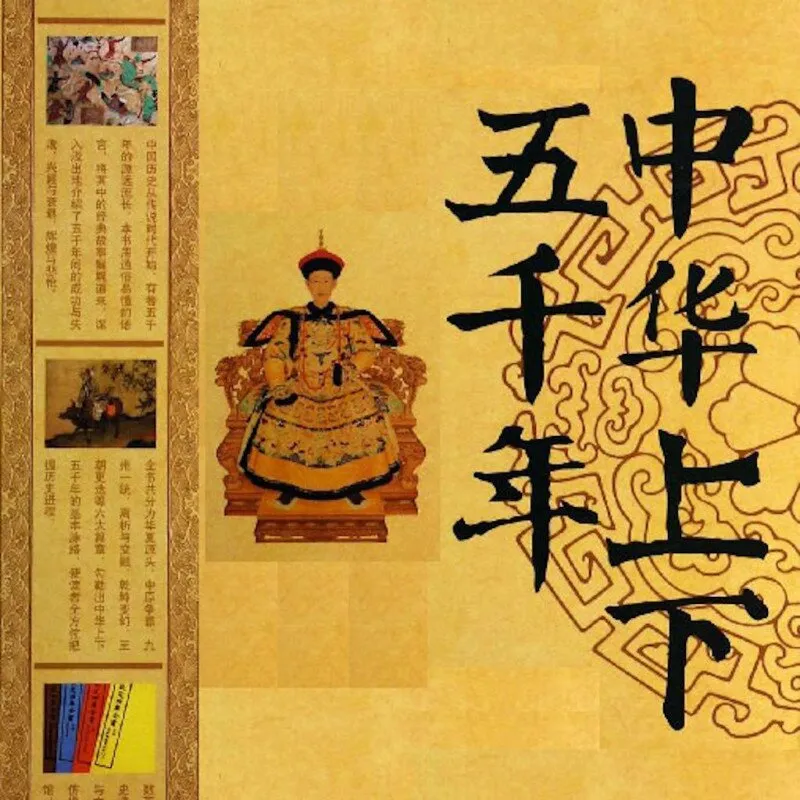 中华上下
五千年
中国历史从传说时代开始，有着五千
年的源远流长。本书用通俗易懂的语
言，将其中的经典故事娓娓道来，深
入浅出地介绍了五千年间的成功与失
辉煌与悲怆。
全书共分为华夏源头、中原争霸、九
州一统、离析与交融、王
朝更迭等六大篇章，勾勒出中华上下
五千年的基本脉络，使读者全方位把
握历史进程